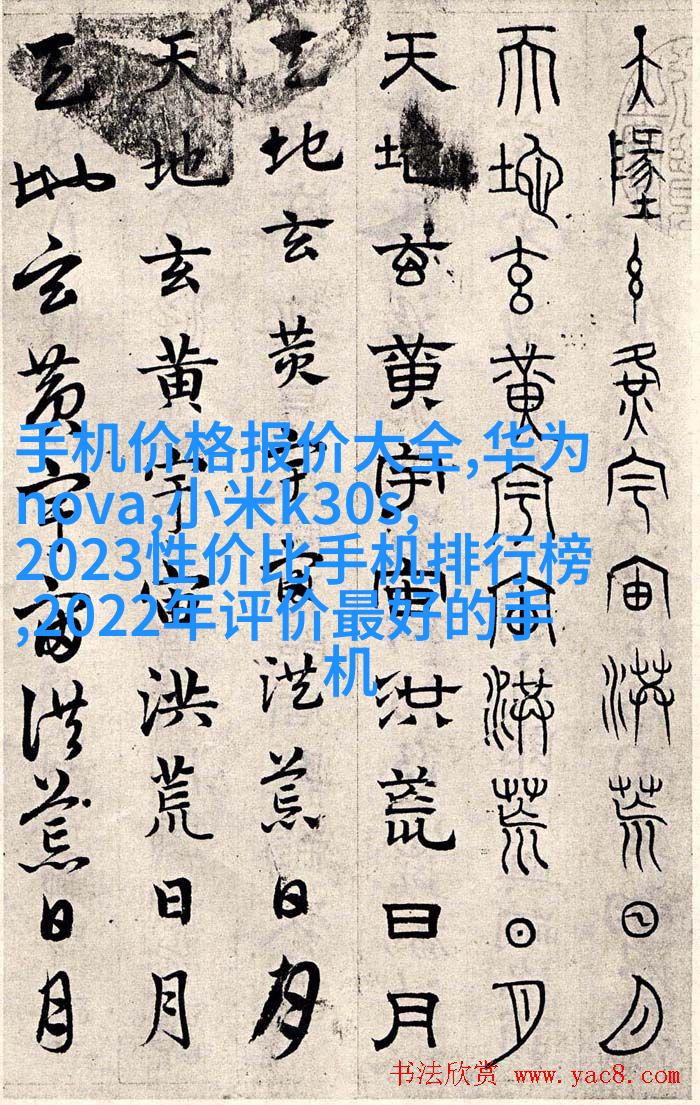 天墬玄黃宇宙洪荒日月
天地玄黃宇宙洪荒日月
天地玄黃宇宙洪荒日月
天地玄黃宇宙洪荒日月
天地玄黃宇宙洪荒日月
天地玄黃宇宙洪荒日月
手机价格报价大全,华为
nova,小米k30s,
2023性价比手机排行榜
,2022年评价最好的手
机
书法欣赏 www.yac8.com